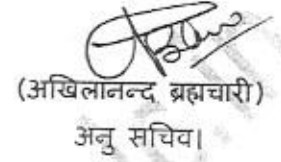 (अखिलानन्द ब्रह्मचारी)
अनु सचिव|